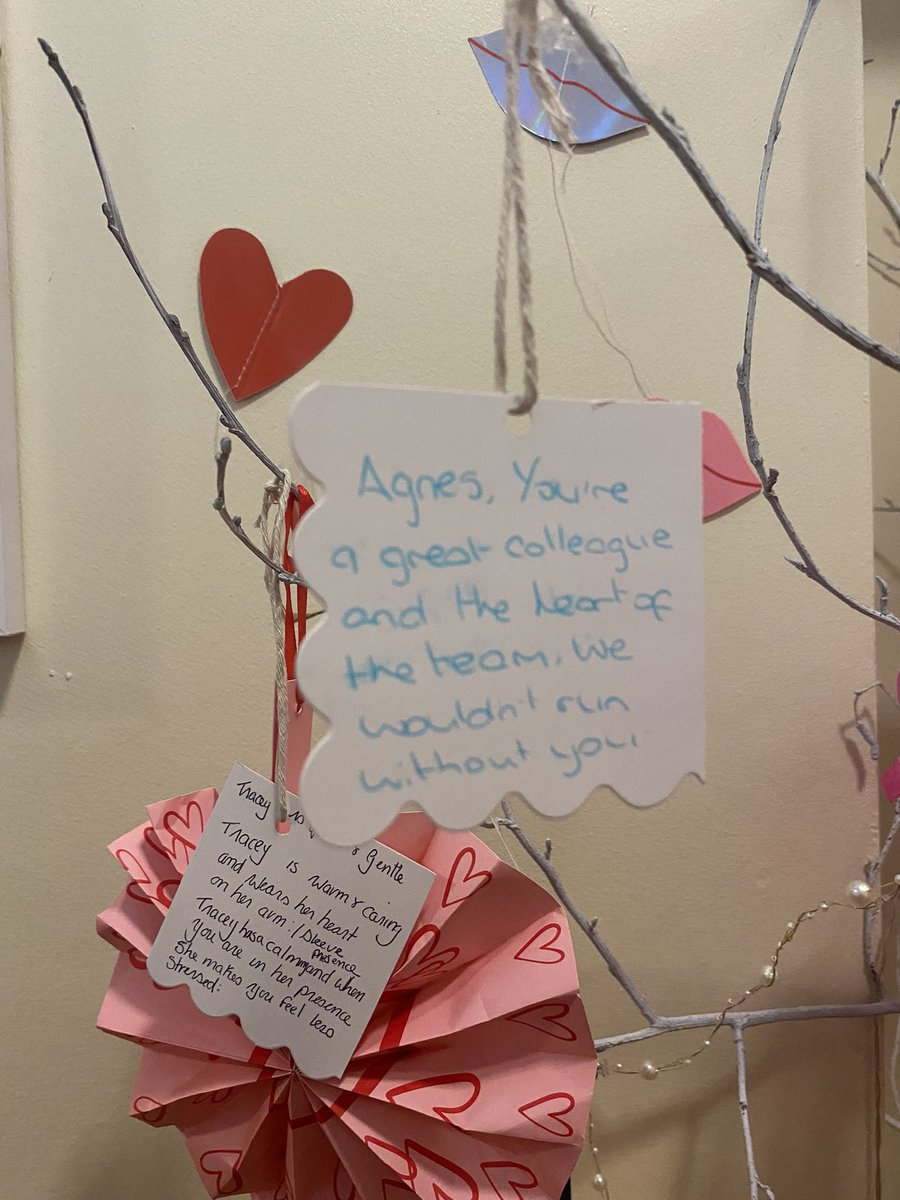 Agnes, You're
a great colleague
and the heart of
the team. We
wouldn't run
without you.
Tracey is
& Gentle
Tracey is warm & caring
and wears her heart
on her arm: / sleeve
Tracey has a calming presence and when
you are in her presence
She makes you feel less
stressed: